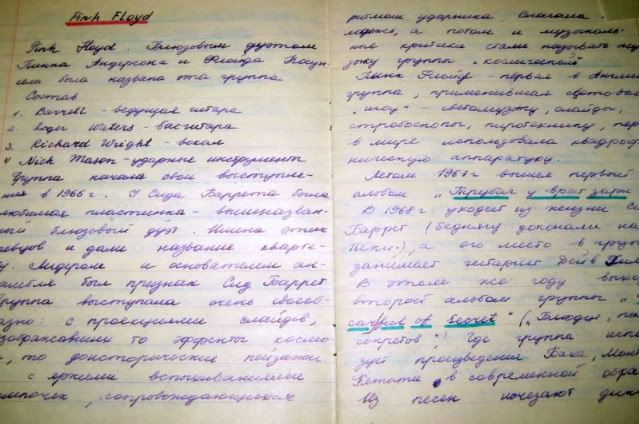 Pink Floyd
Pink Floyd. Блюзовым дуэтом
Пинка Андерсона и Флойда Каун-
села была названа эта группа
Состав
1. Barrett - ведущая гитара
2. Roger Waters - басгитара
3. Richard Wright - вокал
4 Nick Mason - ударные инструменты
Группа начала свои выступле-
ния в 1966 г. У Сида Баррета была
любимая пластинка - вышеназван-
ный блюзовый дуэт. Имена этих
певцов и дали название кварте-
ту. Лидером и основателем ан-
самбля был признан Сид Баррет
Группа выступала очень своеоб-
разно: с проекциями слайдов,
изображавшими то эффекты космо-
са, то доисторические пейзажи
с яркими вспыхиваниями
лампочек, сопровождающихся
ритмом ударника. Сначала
а потом и музыкаль-
ные критики стали называть му-
зыку группы "космической"
Пинк Флойд - первая в Англии
группа, применившая световое
"шоу" - светомузыку, слайды,
стробоскопы, пиротехнику,
в мире использовала квадрофо-
ническую аппаратуру.
Летом 1967 г вышел первый
альбом "Трубач у врат зари
В 1968 г. уходит из жизни Сид
Баррет (беднягу доконали на
), а его место в группе
занимает гитарист Дейв Гилм
В этом же году выход
второй альбом группы "
of Secret" ("Блюдце, пол
секретов") Где группа испол
зует произведения Баха,
в современной обра
Из песен исчезают